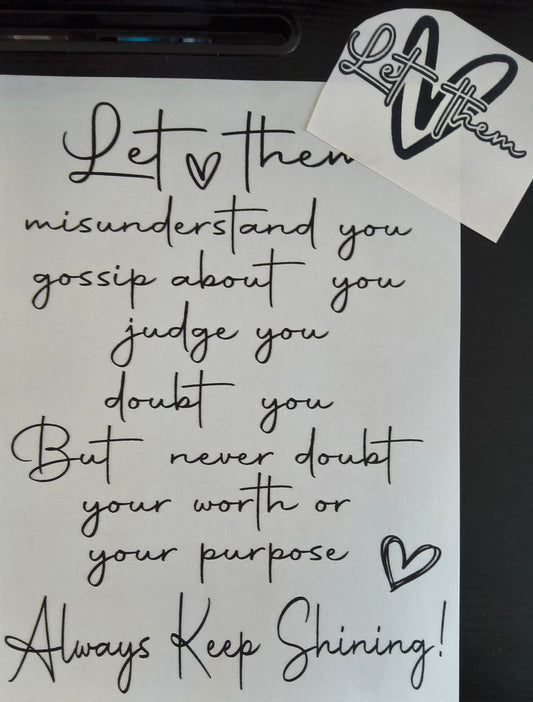 Let them
misunderstand you
gossip about you
judge you
doubt you
But never doubt
your worth or
your purpose
Always Keep Shining!
Let them